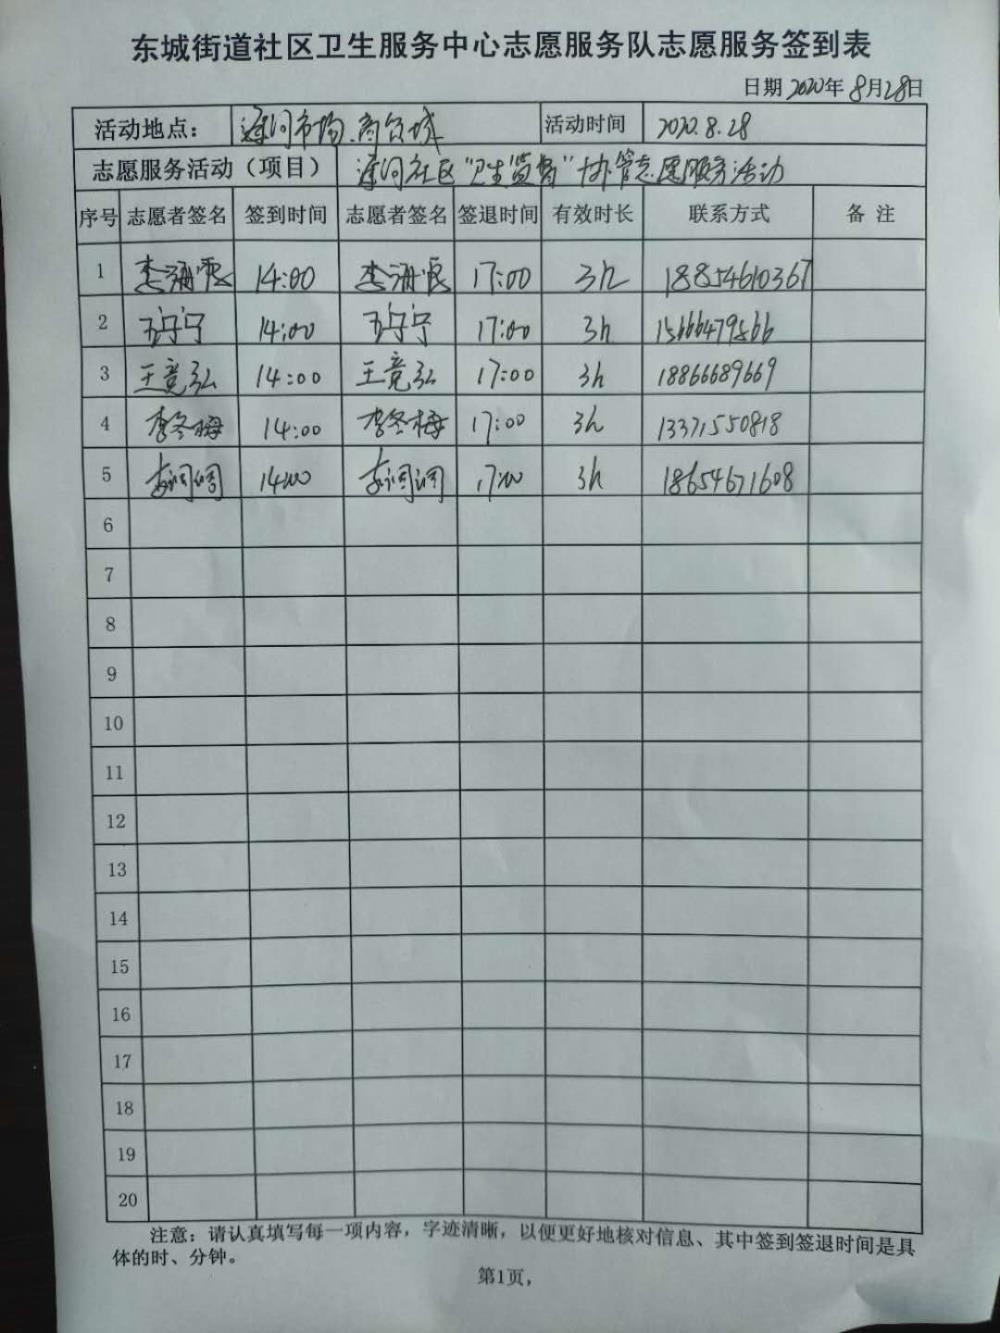 东城街道社区卫生服务中心志愿服务队志愿服务签到表
日期 2020年 8月28日
活动地点： 辽河市场.商贸城 活动时间 2020.8.28
志愿服务活动（项目） 辽河社区“卫生监督”协管志愿服务活动
序号 志愿者签名 签到时间 志愿者签名 签退时间 有效时长 联系方式 备 注
1 14:00 17:00 3h 18854610367
2 14:00 17:00 3h 15666479566
3 王竟弘 14:00 王竟弘 17:00 3h 18866689669
4 李冬梅 14:00 李冬梅 17:00 3h 13371550818
5 14:00 17:00 3h 18654671608
6
7
8
9
10
11
12
13
14
15
16
17
18
19
20
注意：请认真填写每一项内容，字迹清晰，以便更好地核对信息、其中签到签退时间是具
体的时、分钟。
第1页,